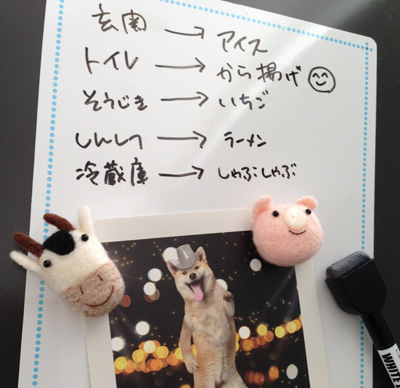 玄関 → アイス
トイレ → から揚げ
そうじき → いちご
しんしつ → ラーメン
冷蔵庫 → しゃぶしゃぶ
WHITE